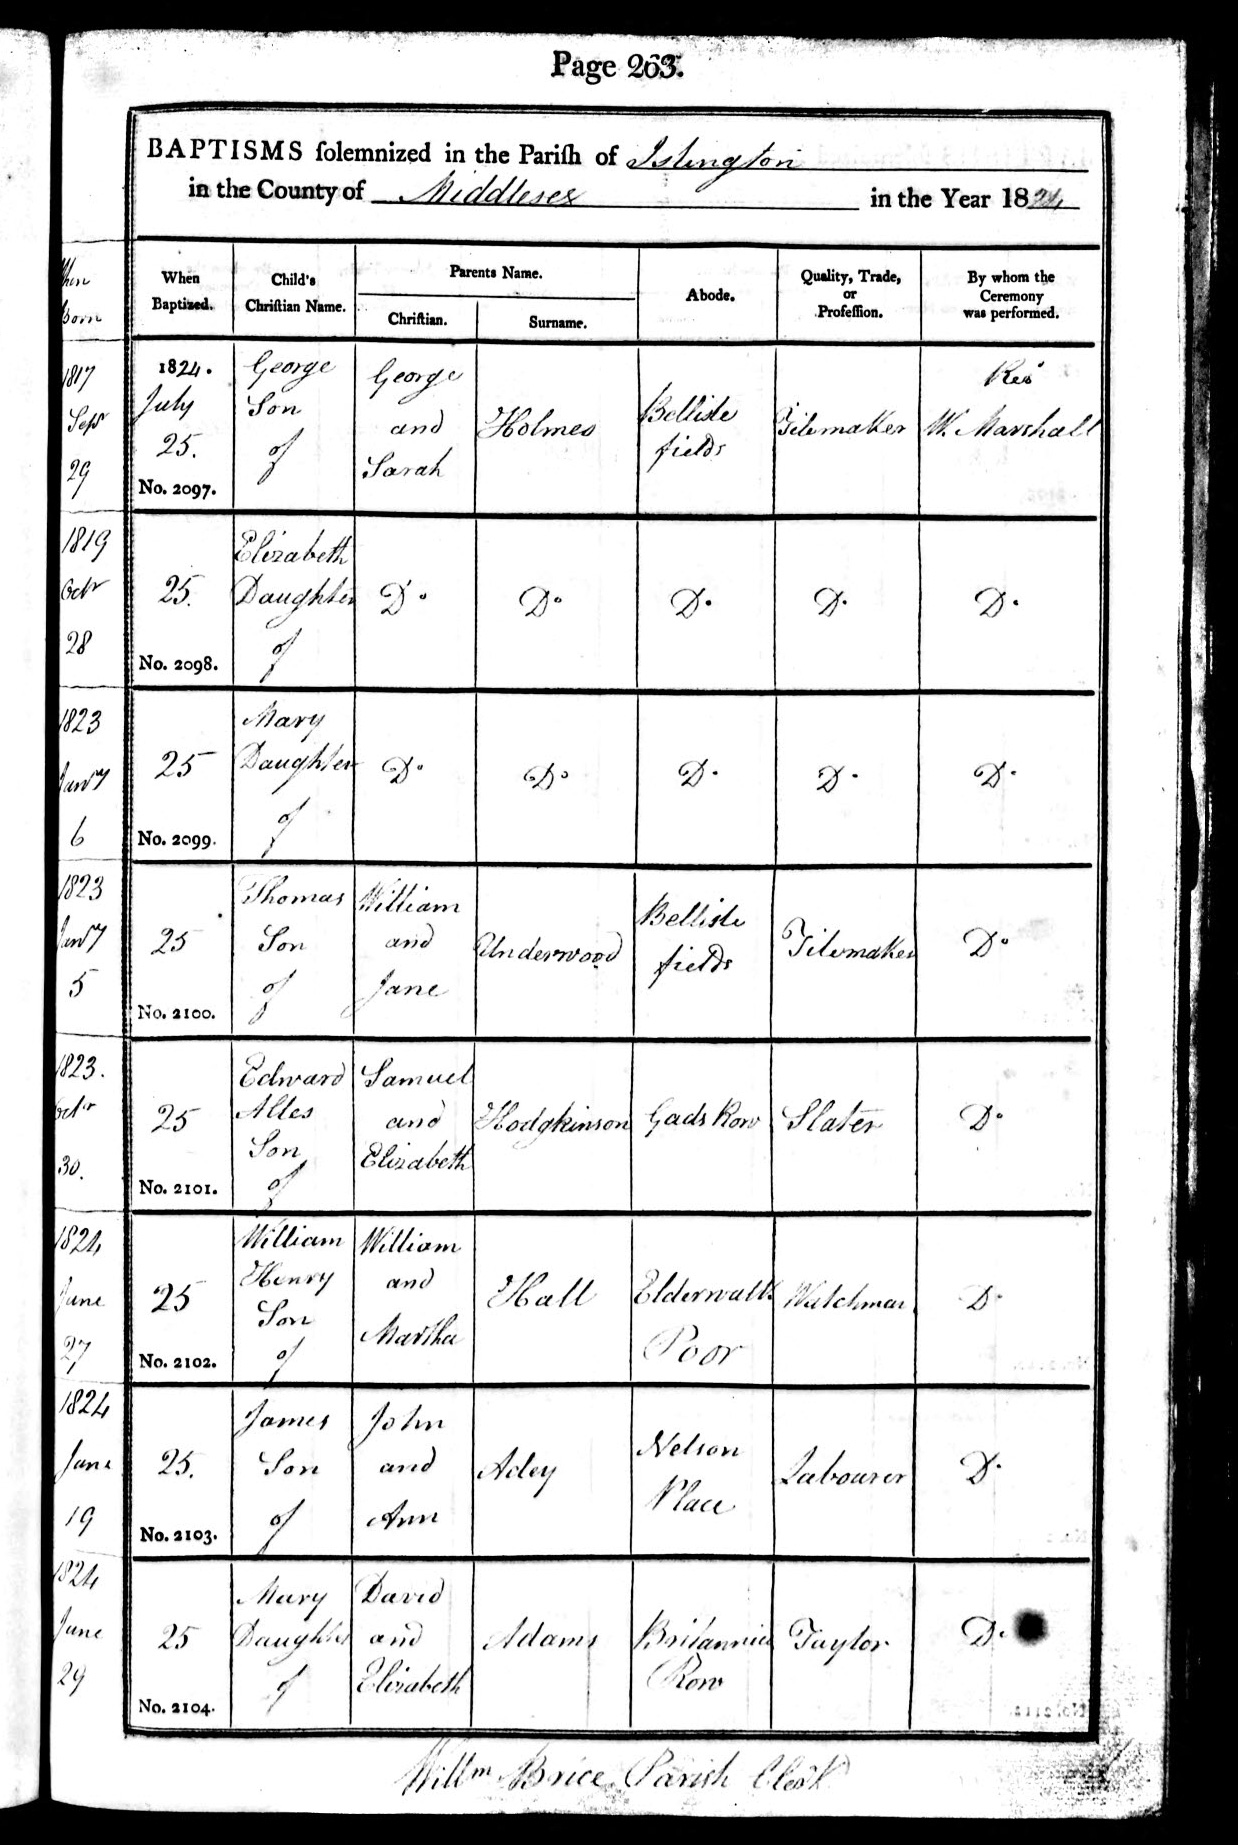 Page 263.
BAPTISMS ſolemnized in the Pariſh of Islington
in the County of Middlesex in the Year 1824
When
Born
When
Baptized.
Child's
Chriſtian Name.
Parents Name.
Chriſtian.
Surname.
Abode.
Quality, Trade,
or
Profeſſion.
By whom the
Ceremony
was performed.
1817
Sepr
29
1824.
July
25.
No. 2097.
George
Son
of
George
and
Sarah
Holmes
Bellisle
fields
Tilemaker
Revd
W. Marshall
1819
Octr
28
25.
No. 2098.
Elizabeth
Daughter
of
Do
Do
Do
Do
Do
1823
Jany
6
25
No. 2099.
Mary
Daughter
of
Do
Do
Do
Do
Do
1823
Jany
5
25
No. 2100.
Thomas
Son
of
William
and
Jane
Underwood
Bellisle
fields
Tilemaker
Do
1823.
Octr
30.
25
No. 2101.
Edward
Alles
Son
of
Samuel
and
Elizabeth
Hodgkinson
Gads Row
Slater
Do
1824
June
27
25
No. 2102.
William
Henry
Son
of
William
and
Martha
Hall
Elderwalk
Poor
Watchman
Do
1824
June
19
25.
No. 2103.
James
Son
of
John
and
Ann
Adey
Nelson
Place
Labourer
Do
1824
June
29
25
No. 2104.
Mary
Daughter
of
David
and
Elizabeth
Adams
Britannia
Row
Taylor
Do
Willm Brice Parish Clerk